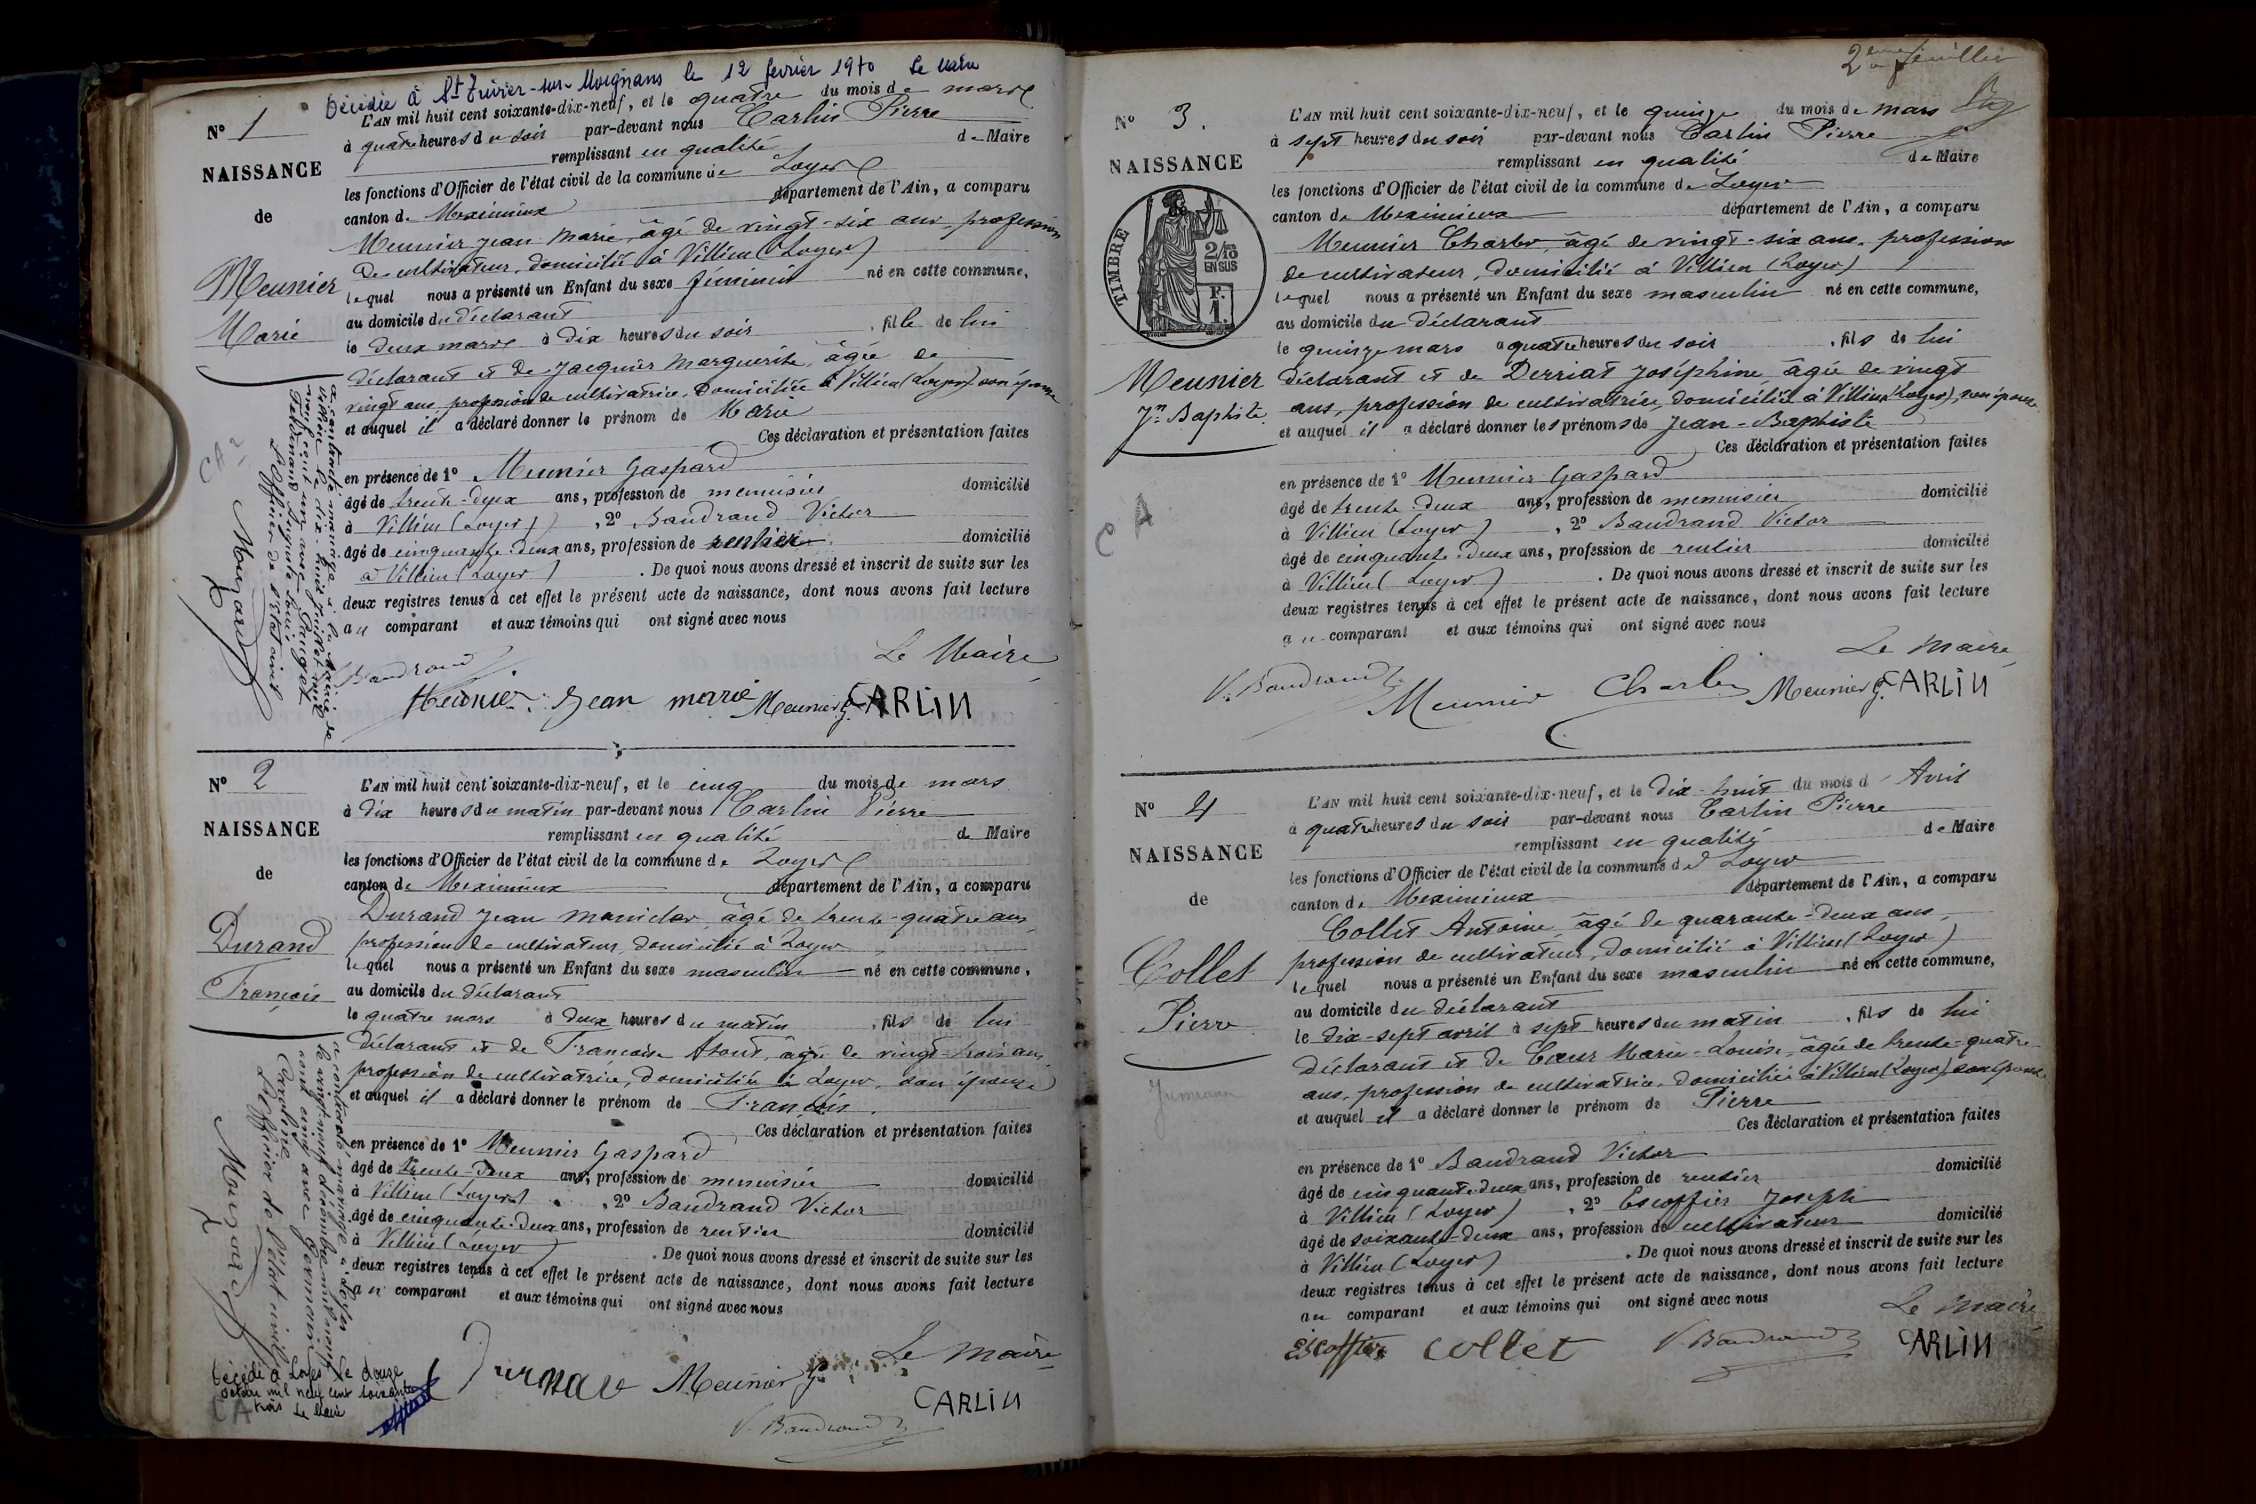 Décédée à St Trivier-sur-Moignans le 12 février 1970 Le Maire
N° 1
NAISSANCE
de
Meunier
Marie
L'AN mil huit cent soixante-dix-neuf, et le quatre du mois de mars
à quatre heures du soir par-devant nous Carlin Pierre
remplissant en qualité de Maire
les fonctions d'Officier de l'état civil de la commune de Loyes
canton de Meximieux département de l'Ain, a comparu
Meunier Jean Marie, âgé de vingt-six ans, profession
de cultivateur, domicilié à Villieu (Loyes)
lequel nous a présenté un Enfant du sexe féminin né en cette commune,
au domicile du déclarant
le deux mars à dix heures du soir, fille de lui
déclarant et de Jacquier Marguerite, âgée de
vingt ans, profession de cultivatrice, domiciliée à Villieu (Loyes) son épouse
et auquel il a déclaré donner le prénom de Marie
Ces déclaration et présentation faites
en présence de 1° Meunier Gaspard
âgé de trente-deux ans, profession de menuisier domicilié
à Villieu (Loyes), 2° Baudrand Victor
âgé de cinquante-deux ans, profession de rentier domicilié
à Villieu (Loyes). De quoi nous avons dressé et inscrit de suite sur les
deux registres tenus à cet effet le présent acte de naissance, dont nous avons fait lecture
au comparant et aux témoins qui ont signé avec nous
Le Maire
Baudrand
Meunier Jean marie Meunier G. CARLIN
a contracté mariage à la Mairie de
Villieu le dix-huit juillet mil
neuf cent un avec
L'Officier de l'Etat civil
CA
N° 2
NAISSANCE
de
Durand
François
L'AN mil huit cent soixante-dix-neuf, et le cinq du mois de mars
à dix heures du matin par-devant nous Carlin Pierre
remplissant en qualité de Maire
les fonctions d'Officier de l'état civil de la commune de Loyes
canton de Meximieux département de l'Ain, a comparu
Durand Jean âgé de trente-quatre ans,
profession de cultivateur, domicilié à Loyes
lequel nous a présenté un Enfant du sexe masculin né en cette commune,
au domicile du déclarant
le quatre mars à deux heures du matin, fils de lui
déclarant et de Françoise âgée de vingt-trois ans,
profession de cultivatrice, domiciliée à Loyes, son épouse
et auquel il a déclaré donner le prénom de François.
Ces déclaration et présentation faites
en présence de 1° Meunier Gaspard
âgé de trente-deux ans, profession de menuisier domicilié
à Villieu (Loyes), 2° Baudrand Victor
âgé de cinquante-deux ans, profession de rentier domicilié
à Villieu (Loyes). De quoi nous avons dressé et inscrit de suite sur les
deux registres tenus à cet effet le présent acte de naissance, dont nous avons fait lecture
au comparant et aux témoins qui ont signé avec nous
Le Maire
Meunier G. CARLIN
V. Baudrand
a contracté mariage à Loyes
le vingt-neuf décembre mil neuf
cent cinq avec Germain
L'Officier de l'état civil
Décédé à Loyes le douze
octobre mil neuf cent soixante
trois Le Maire
CA
2eme feuillet
N° 3.
NAISSANCE
TIMBRE
2/10
EN SUS
Meunier
Jn Baptiste
L'AN mil huit cent soixante-dix-neuf, et le quinze du mois de mars
à sept heures du soir par-devant nous Carlin Pierre
remplissant en qualité de Maire
les fonctions d'Officier de l'état civil de la commune de Loyes
canton de Meximieux département de l'Ain, a comparu
Meunier Charles, âgé de vingt-six ans, profession
de cultivateur, domicilié à Villieu (Loyes)
lequel nous a présenté un Enfant du sexe masculin né en cette commune,
au domicile du déclarant
le quinze mars à quatre heures du soir, fils de lui
déclarant et de Derriat Joséphine, âgée de vingt
ans, profession de cultivatrice, domiciliée à Villieu (Loyes), son épouse
et auquel il a déclaré donner les prénoms de Jean-Baptiste
Ces déclaration et présentation faites
en présence de 1° Meunier Gaspard
âgé de trente-deux ans, profession de menuisier domicilié
à Villieu (Loyes), 2° Baudrand Victor
âgé de cinquante-deux ans, profession de rentier domicilié
à Villieu (Loyes). De quoi nous avons dressé et inscrit de suite sur les
deux registres tenus à cet effet le présent acte de naissance, dont nous avons fait lecture
au comparant et aux témoins qui ont signé avec nous
Le Maire
V. Baudrand Meunier Charles Meunier G. CARLIN
CA
N° 4
NAISSANCE
de
Collet
Pierre
L'AN mil huit cent soixante-dix-neuf, et le dix-huit du mois d'Avril
à quatre heures du soir par-devant nous Carlin Pierre
remplissant en qualité de Maire
les fonctions d'Officier de l'état civil de la commune de Loyes
canton de Meximieux département de l'Ain, a comparu
Collet Antoine, âgé de quarante-deux ans,
profession de cultivateur, domicilié à Villieu (Loyes)
lequel nous a présenté un Enfant du sexe masculin né en cette commune,
au domicile du déclarant
le dix-sept avril à sept heures du matin, fils de lui
déclarant et de Cœur Marie-Louise, âgée de trente-quatre
ans, profession de cultivatrice, domiciliée à Villieu (Loyes) son épouse
et auquel il a déclaré donner le prénom de Pierre
Ces déclaration et présentation faites
en présence de 1° Baudrand Victor
âgé de cinquante-deux ans, profession de rentier domicilié
à Villieu (Loyes), 2° Escoffier Joseph
âgé de soixante-deux ans, profession de cultivateur domicilié
à Villieu (Loyes). De quoi nous avons dressé et inscrit de suite sur les
deux registres tenus à cet effet le présent acte de naissance, dont nous avons fait lecture
au comparant et aux témoins qui ont signé avec nous
Le Maire
Escoffier collet V. Baudrand CARLIN